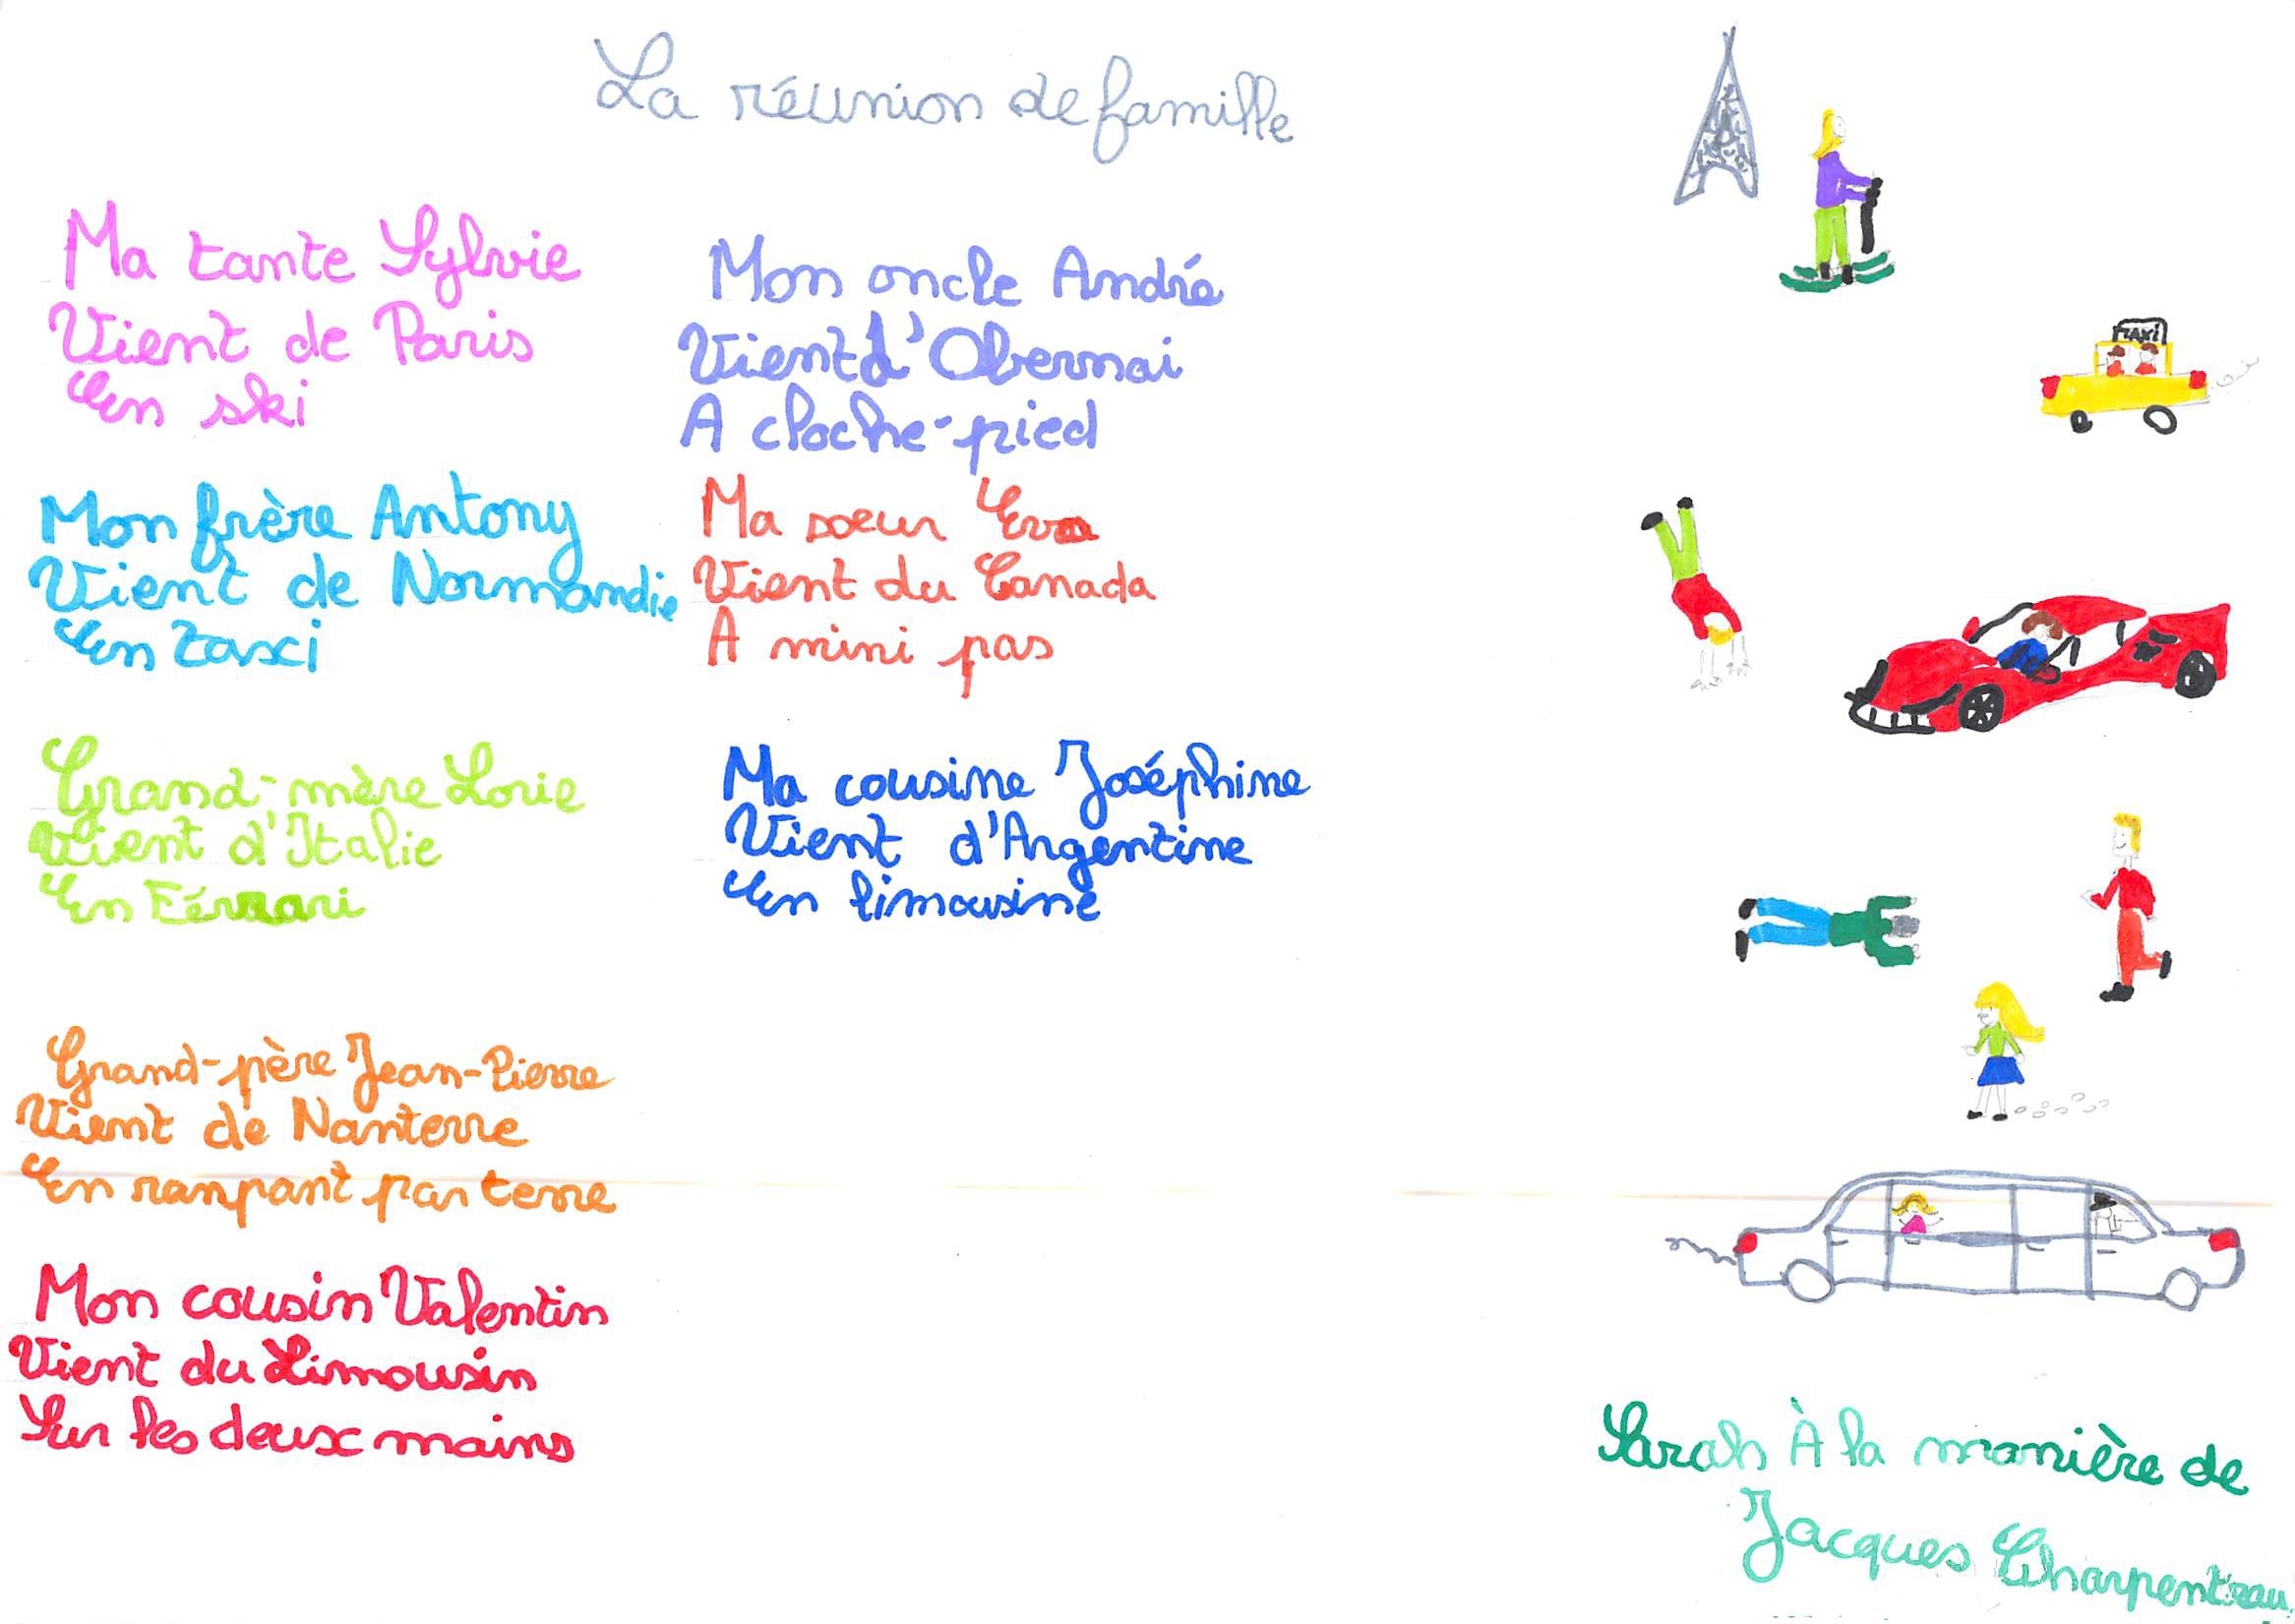 La réunion de famille
Ma tante Sylvie
Vient de Paris
En ski
Mon frère Antony
Vient de Normandie
En taxi
Grand-mère Lorie
Vient d'Italie
En Férrari
Grand-père Jean-Pierre
Vient de Nanterre
En rampant par terre
Mon cousin Valentin
Vient du Limousin
Sur les deux mains
Mon oncle André
Vient d'Obernai
A cloche-pied
Ma soeur Eva
Vient du Canada
A mini pas
Ma cousine Joséphine
Vient d'Argentine
En limousine
TAXI
Sarah À la manière de
Jacques Charpentreau